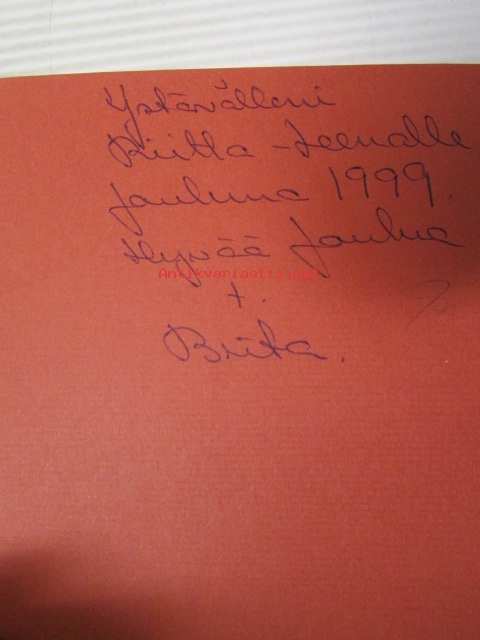 Ystävälleni
Riitta-Leenalle
Jouluna 1999.
Hyvää Joulua
Antikvariaatti.net
t.
Brita.